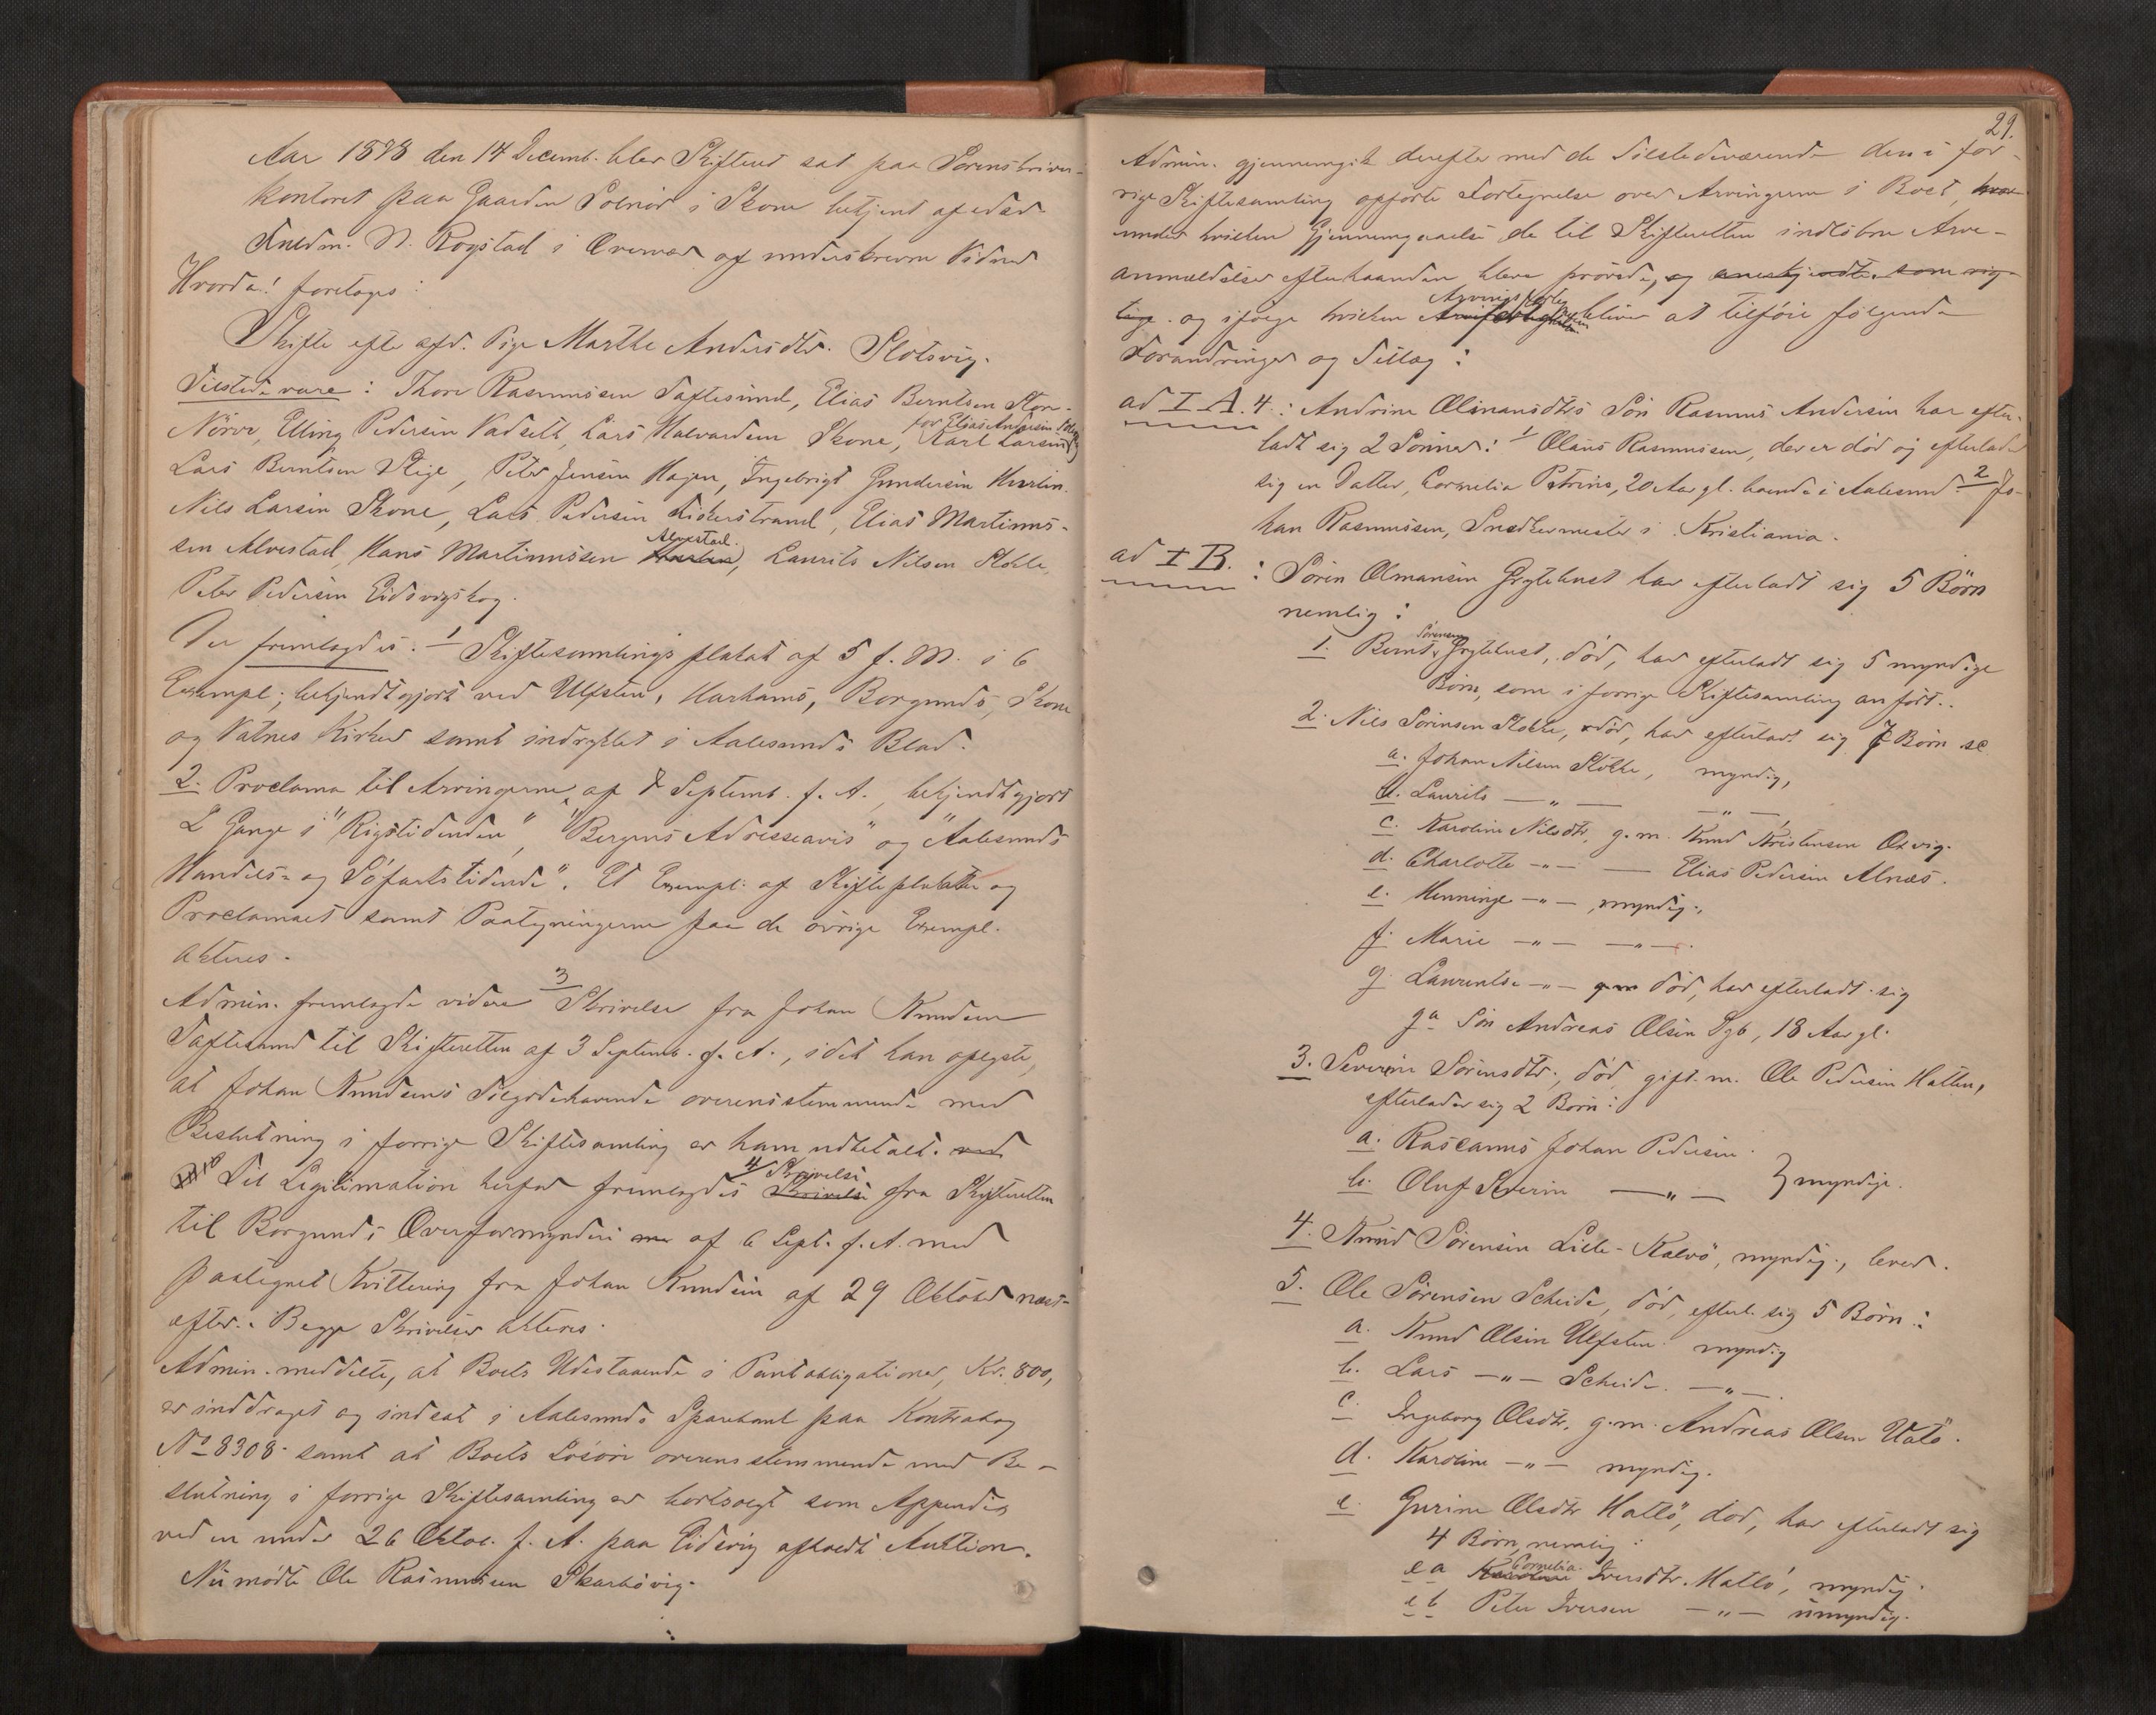 Aar 1898 den 14 Decemb. blev Skifteret sat paa Sorenskriver-
kontoret paa Gaarden Solnör i Skone betjent af edsv.
Fuldm. N. Rogstad i Overvær af underskrevne Vidner
Hvorda! foretoges:
Skifte efter afd. Pige Marthe Andersdtr. Slotsvig.
Tilstede vare: Thore Rasmussen Taftesund, Elias Berntsen Stor-
Nörve, Elling Pedersen Vadset, Lars Halvardsen Skone, for Elias Andersen Karl Larsen
Lars Berntsen Stige, Peter Jensen Hagen, Ingebrigt Gundersen
Nils Larsen Skone, Lars Pedersen Liaherstrand, Elias Martinus-
sen Alvestad, Hans Martinussen Alvestad, Laurits Nilsen Stokke,
Peter Pedersen Eidsvigshog.
Der fremlagdes: 1 Skiftesamlings plakat af 5 f. M. i 6
Exempl; bekjendtgjort ved Ulfsten, Harhams, Borgunds, Skone
og Vatnes Kirker samt indrykket i Aalesunds Blad.
2. Proclama til Arvingerne af 8 Septemb. f. A., bekjendtgjort
2 Gange i "Rigstidenden", "Bergens Adresseavis" og "Aalesunds
Handels- og Söfartstidende". Et Exempl. af Skifteplakaten og
Proclamaet samt Paategningerne paa de övrige Exempl.
akteres.
Admin. fremlagde videre 3 Skrivelse fra Johan Knudsen
Taftesund til Skifteretten af 3 Septemb. f. A., idet han oplyste,
at Johan Knudsens Tilgodehavende overensstemmende med
Beslutning i forrige Skiftesamling er ham udbetalt. med
Til Legitimation herfor fremlagdes 4 Skrivelse Skrivelse fra Skifteretten
til Borgunds Overformynderi af 6 Sept. f. A. med
paategnet Kvittering fra Johan Knudsen af 29 Oktober næst-
efter. Begge Skrivelser akteres.
Admin. meddelte, at Boets Udestaaende i Pantobligationer, Kr. 800,
er inddraget og indsat i Aalesunds Sparebank paa Kontrabog
No 8308 samt at Boets Lösöre overensstemmende med Be-
slutning i forrige Skiftesamling er bortsolgt som Appendix
ved en under 26 Oktob. f. A. paa Eidsvig afholdt Auktion.
Nu mödte Ole Rasmussen Skarbövig.
29.
Admin. gjennemgik derefter med de Tilstedeværende den i for-
rige Skiftesamling opförte Fortegnelse over Arvingerne i Boet, hvor
under hvilken Gjennemgaaelse de til Skifteretten indlöbne Arve-
anmældelser efterhaanden blev prövede, og anerkjendte som rig-
tige. og ifölge hvilken bliver at tilföie fölgende
Forandringer og Tillæg:
ad I A. 4: Andrine Olsinansdtrs Sön Rasmus Andersen har efter-
ladt sig 2 Sönner: 1 Olaus Rasmussen, der er död og efterlader
sig en Datter, Cornelia Petrine, 20 Aar gl. boende i Aalesund. 2 Jo-
han Rasmussen, Snedkermester i Kristiania.
ad I B.: Sören Olmansen Grytehust har efterladt sig 5 Börn
nemlig:
1. Bernt Sörensen Grytehust, död, har efterladt sig 5 myndige
Börn, som i forrige Skiftesamling anfört..
2. Nils Sörensen Stokke, död, har efterladt sig 7 Börn sc
a. Johan Nilsen Stokke, myndig,
b. Laurits —"— —"—,
c. Karoline Nilsdtr, g. m. Knud Kristensen Oxvig.
d. Charlotte —"— — Elias Pedersen Alnæs.
e. Henninge —"—, myndig.,
f. Marie —"— —"—.
g. Laurentse —"— gm död, har efterladt sig
ga Sön Andreas Olsen Sgb, 18 Aar gl.
3. Severine Sörensdtr., död, gift. m. Ole Pedersen Hatlen,
efterlader sig 2 Börn:
a. Rascanus Johan Pedersen.
b. Oluf Severin —"— } myndige.
4. Knud Sörensen Lille-Kalvö, myndig., lever.
5. Ole Sörensen Scheide, död, efterl. sig 5 Börn:
a. Knud Olsen Ulfsten myndig
b. Lars —"— Scheide. —"—.
c. Ingeborg Olsdtr. g. m. Andreas Olsen Ulatö.
d. Karoline —"— myndig.
e. Gurine Olsdtr Hatlö, död, har efterladt sig
4 Börn, nemlig:
ea Cornelia Iversdtr. Hatlö, myndig.
eb Peter Iversen —"— umyndig.